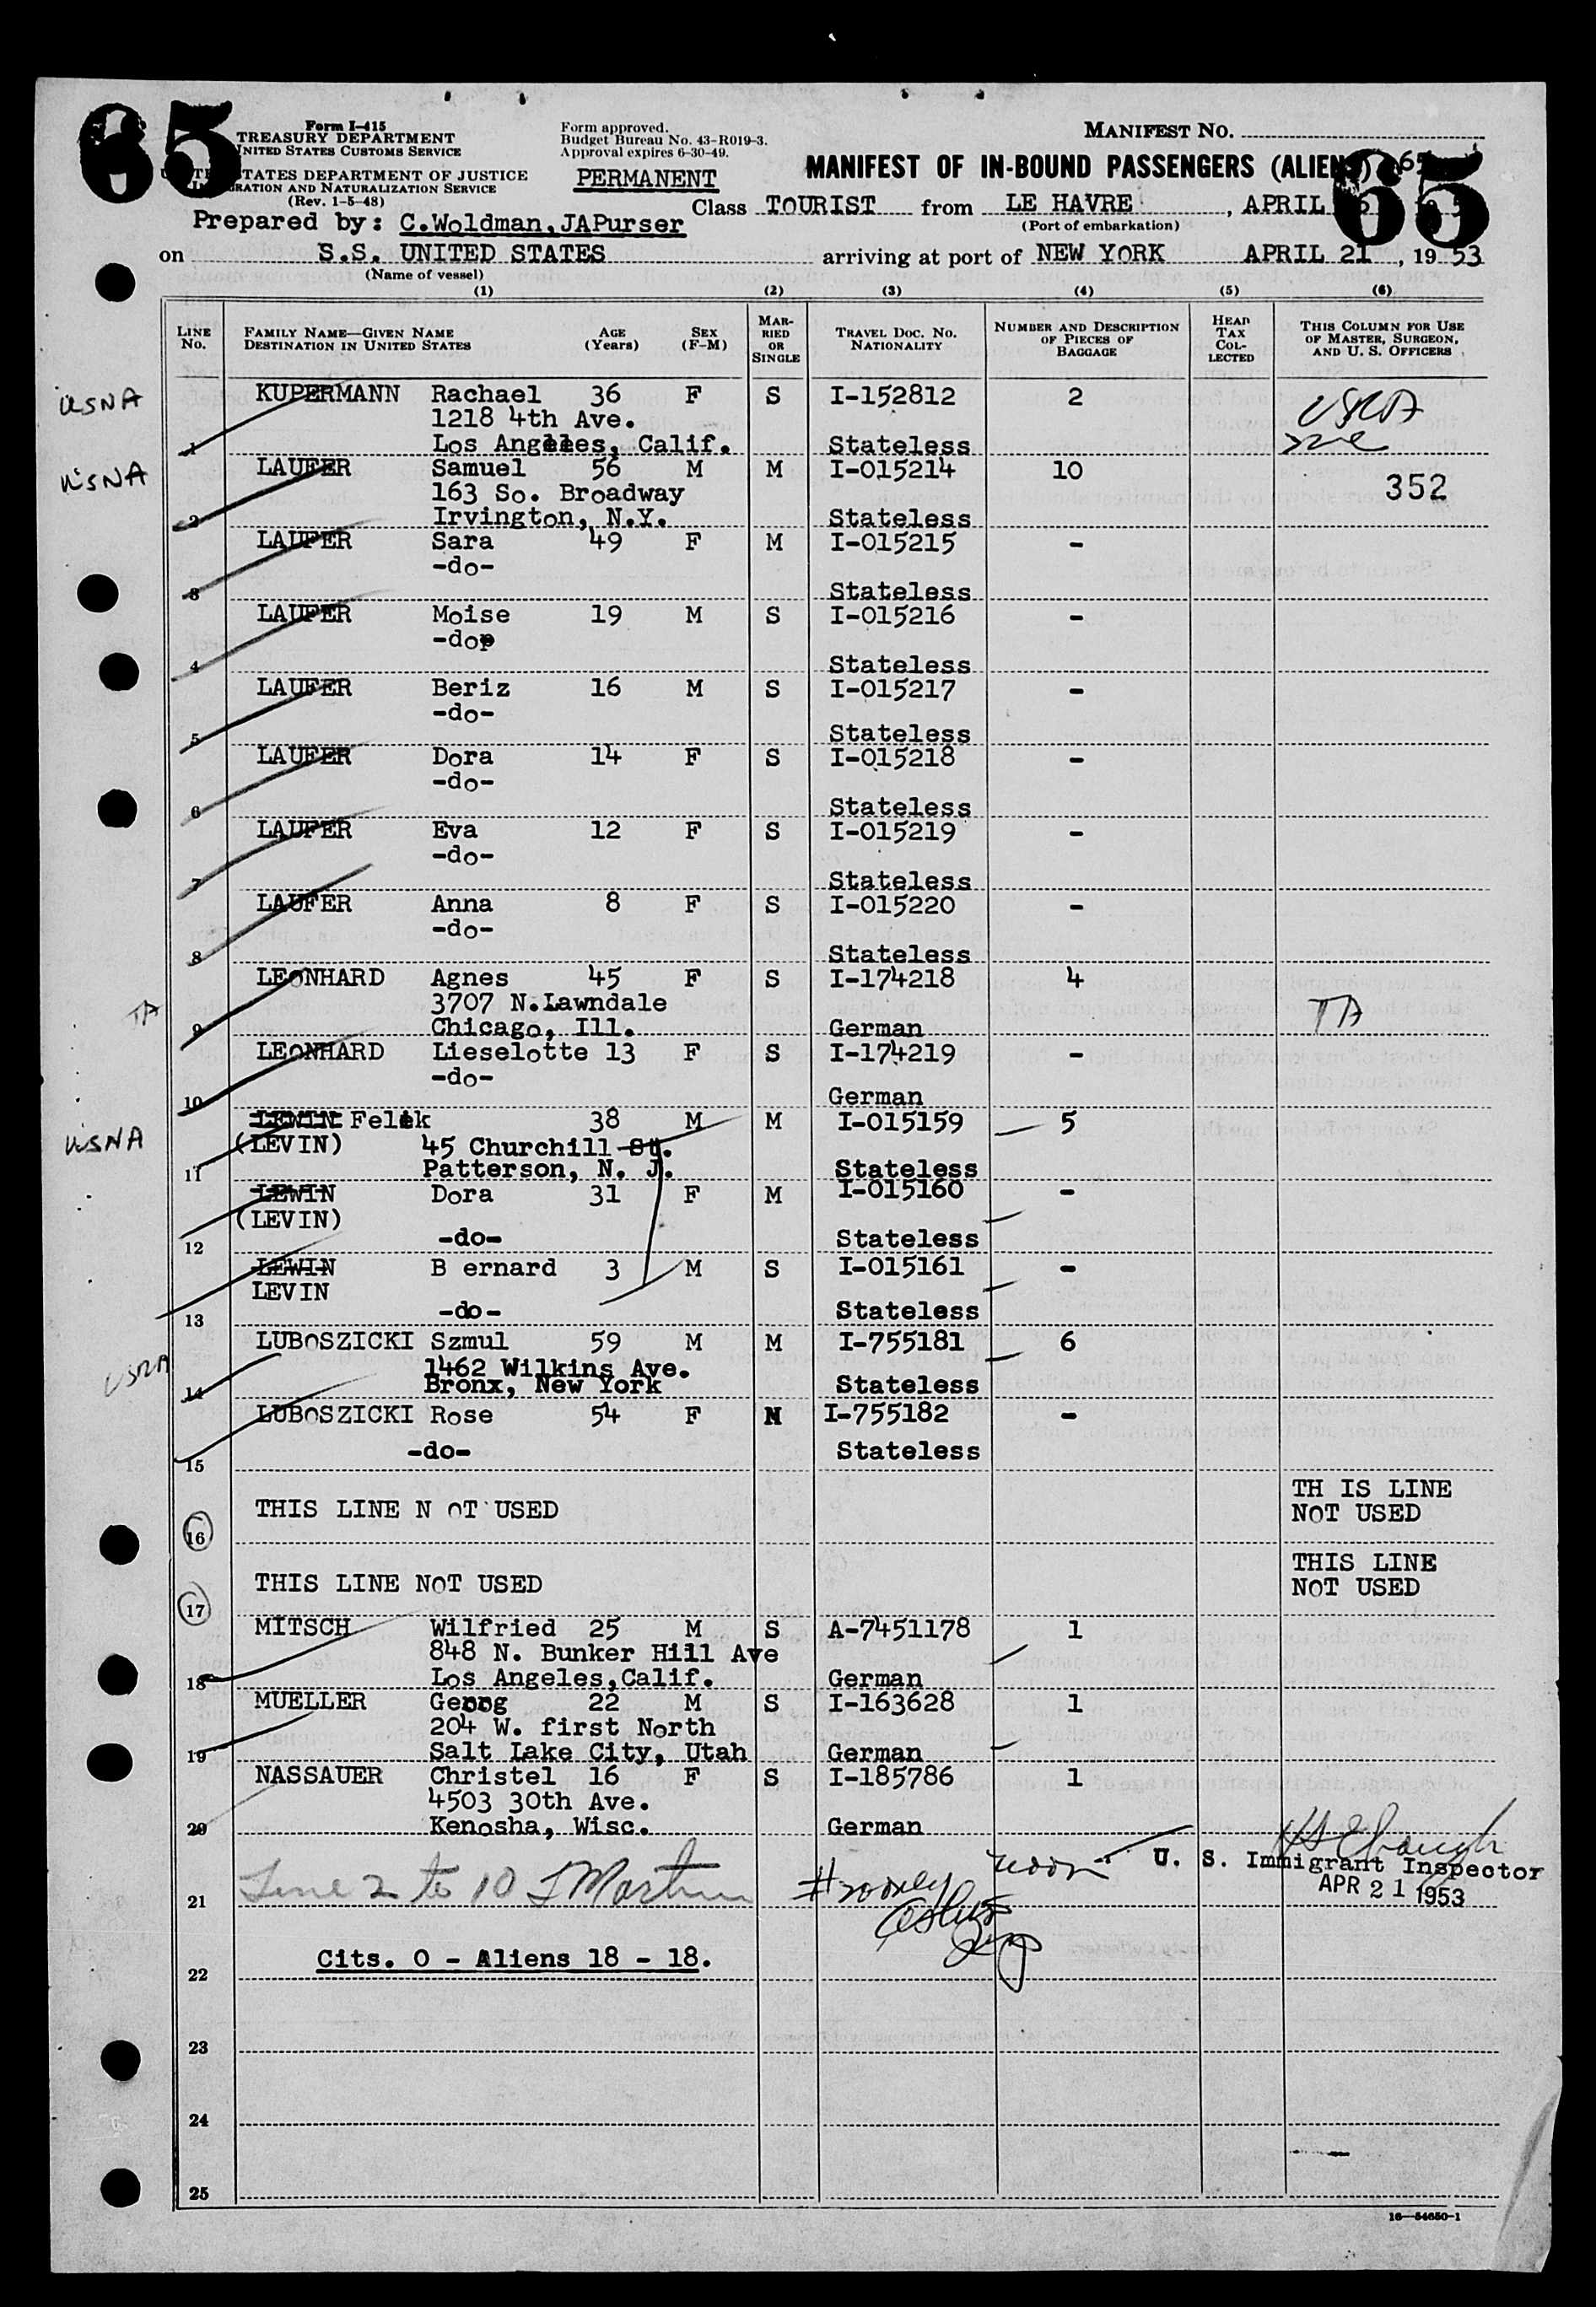 65
Form I-415
TREASURY DEPARTMENT
UNITED STATES CUSTOMS SERVICE
STATES DEPARTMENT OF JUSTICE
IMMIGRATION AND NATURALIZATION SERVICE
(Rev. 1-5-48)
Form approved.
Budget Bureau No. 43-R019-3.
Approval expires 6-30-49.
PERMANENT
MANIFEST NO.
MANIFEST OF IN-BOUND PASSENGERS (ALIENS)
65
Prepared by: C.Woldman,JAPurser Class TOURIST from LE HAVRE, APRIL
(Port of embarkation)
on S.S. UNITED STATES arriving at port of NEW YORK APRIL 21, 1953
(Name of vessel)
(1) (2) (3) (4) (5) (6)
LINE No. FAMILY NAME—GIVEN NAME DESTINATION IN UNITED STATES AGE (Years) SEX (F-M) MARRIED OR SINGLE TRAVEL DOC. NO. NATIONALITY NUMBER AND DESCRIPTION OF PIECES OF BAGGAGE HEAD TAX COLLECTED THIS COLUMN FOR USE OF MASTER, SURGEON, AND U. S. OFFICERS
USNA KUPERMANN Rachael 36 F S I-152812 2 USNA
1218 4th Ave.
1 Los Angeles, Calif. Stateless
USNA LAUFER Samuel 56 M M I-015214 10 352
163 So. Broadway
2 Irvington, N.Y. Stateless
LAUFER Sara 49 F M I-015215 -
-do-
3 Stateless
LAUFER Moise 19 M S I-015216 -
-do-
4 Stateless
LAUFER Beriz 16 M S I-015217 -
-do-
5 Stateless
LAUFER Dora 14 F S I-015218 -
-do-
6 Stateless
LAUFER Eva 12 F S I-015219 -
-do-
7 Stateless
LAUFER Anna 8 F S I-015220 -
-do-
8 Stateless
LEONHARD Agnes 45 F S I-174218 4
3707 N.Lawndale
TA 9 Chicago, Ill. German TA
LEONHARD Lieselotte 13 F S I-174219 -
-do-
10 German
LEWIN Felek 38 M M I-015159 5
USNA (LEVIN) 45 Churchill St.
11 Patterson, N. J. Stateless
LEWIN Dora 31 F M I-015160 -
(LEVIN)
12 -do- Stateless
LEWIN B ernard 3 M S I-015161 -
LEVIN
13 -do- Stateless
LUBOSZICKI Szmul 59 M M I-755181 6
USNA 1462 Wilkins Ave.
14 Bronx, New York Stateless
LUBOSZICKI Rose 54 F M I-755182 -
15 -do- Stateless
16 THIS LINE N OT USED TH IS LINE
NOT USED
17 THIS LINE NOT USED THIS LINE
NOT USED
MITSCH Wilfried 25 M S A-7451178 1
848 N. Bunker Hill Ave
18 Los Angeles,Calif. German
MUELLER Georg 22 M S I-163628 1
204 W. first North
19 Salt Lake City, Utah German
NASSAUER Christel 16 F S I-185786 1
4503 30th Ave.
20 Kenosha, Wisc. German
U. S. Immigrant Inspector
APR 21 1953
21 Line 2 to 10 J Martin
22 Cits. 0 - Aliens 18 - 18.
23
24
25
16—54650-1